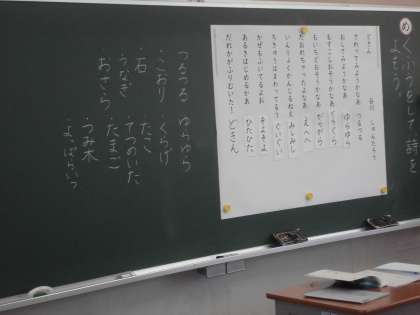 め
くふうをして詩を
よもう。
どきん
谷川 しゅんたろう
さわってみようかなあ つるつる
おしてみようかなあ ゆらゆら
もすこしおそうかなあ ぐらぐら
もいちどおそうかあ がらがら
たおれちゃったよなあ えへへ
いんりょくかんじるねえ みしみし
ちきゅうはまわってるう ぐいぐい
かぜもふいてるよお そよそよ
あるきはじめるかあ ひたひた
だれかがふりむいた! どきん
つるつる ゆらゆら
・こおり ・くらげ
・石 ・たこ
・うなぎ ・てつのいた
・おさら ・たまご
・つみ木
・よっぱらい